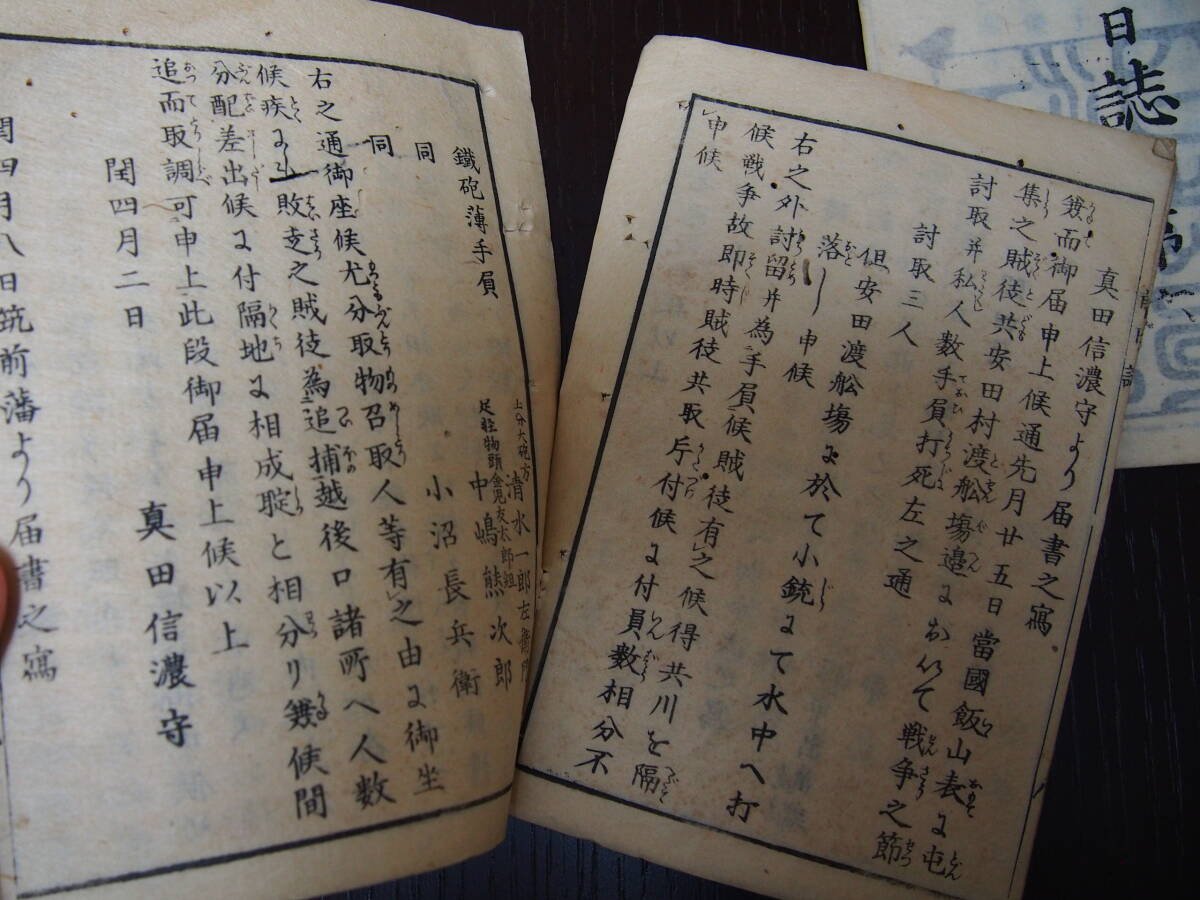 日誌
真田信濃守より届書之寫
兼而御届申上候通先月廿五日當國飯山表ニ屯
集之賊徒共安田村渡舩塲邉におゐて戦争之節
討取并私人数手負打死左之通
討取三人
但安田渡舩塲ニ於て小銃ニて水中へ打
落し申候
右之外討留并為手負候賊徒有之候得共川を隔
候戦争故即時賊徒共取片付候ニ付員数相分不
申候
鐵砲薄手負
上分大砲方
清水一郎左衛門
足軽物頭金児友太郎組
中嶋熊次郎
同
小沼長兵衛
同
右之通御座候尤分取物召取人等有之由ニ御坐
候疾ニ敗走之賊徒為追捕越後口諸所へ人数
分配差出候ニ付隔地ニ相成聢と相分り兼候間
追而取調可申上此段御届申上候以上
閏四月二日
真田信濃守
閏四月八日筑前藩より届書之寫